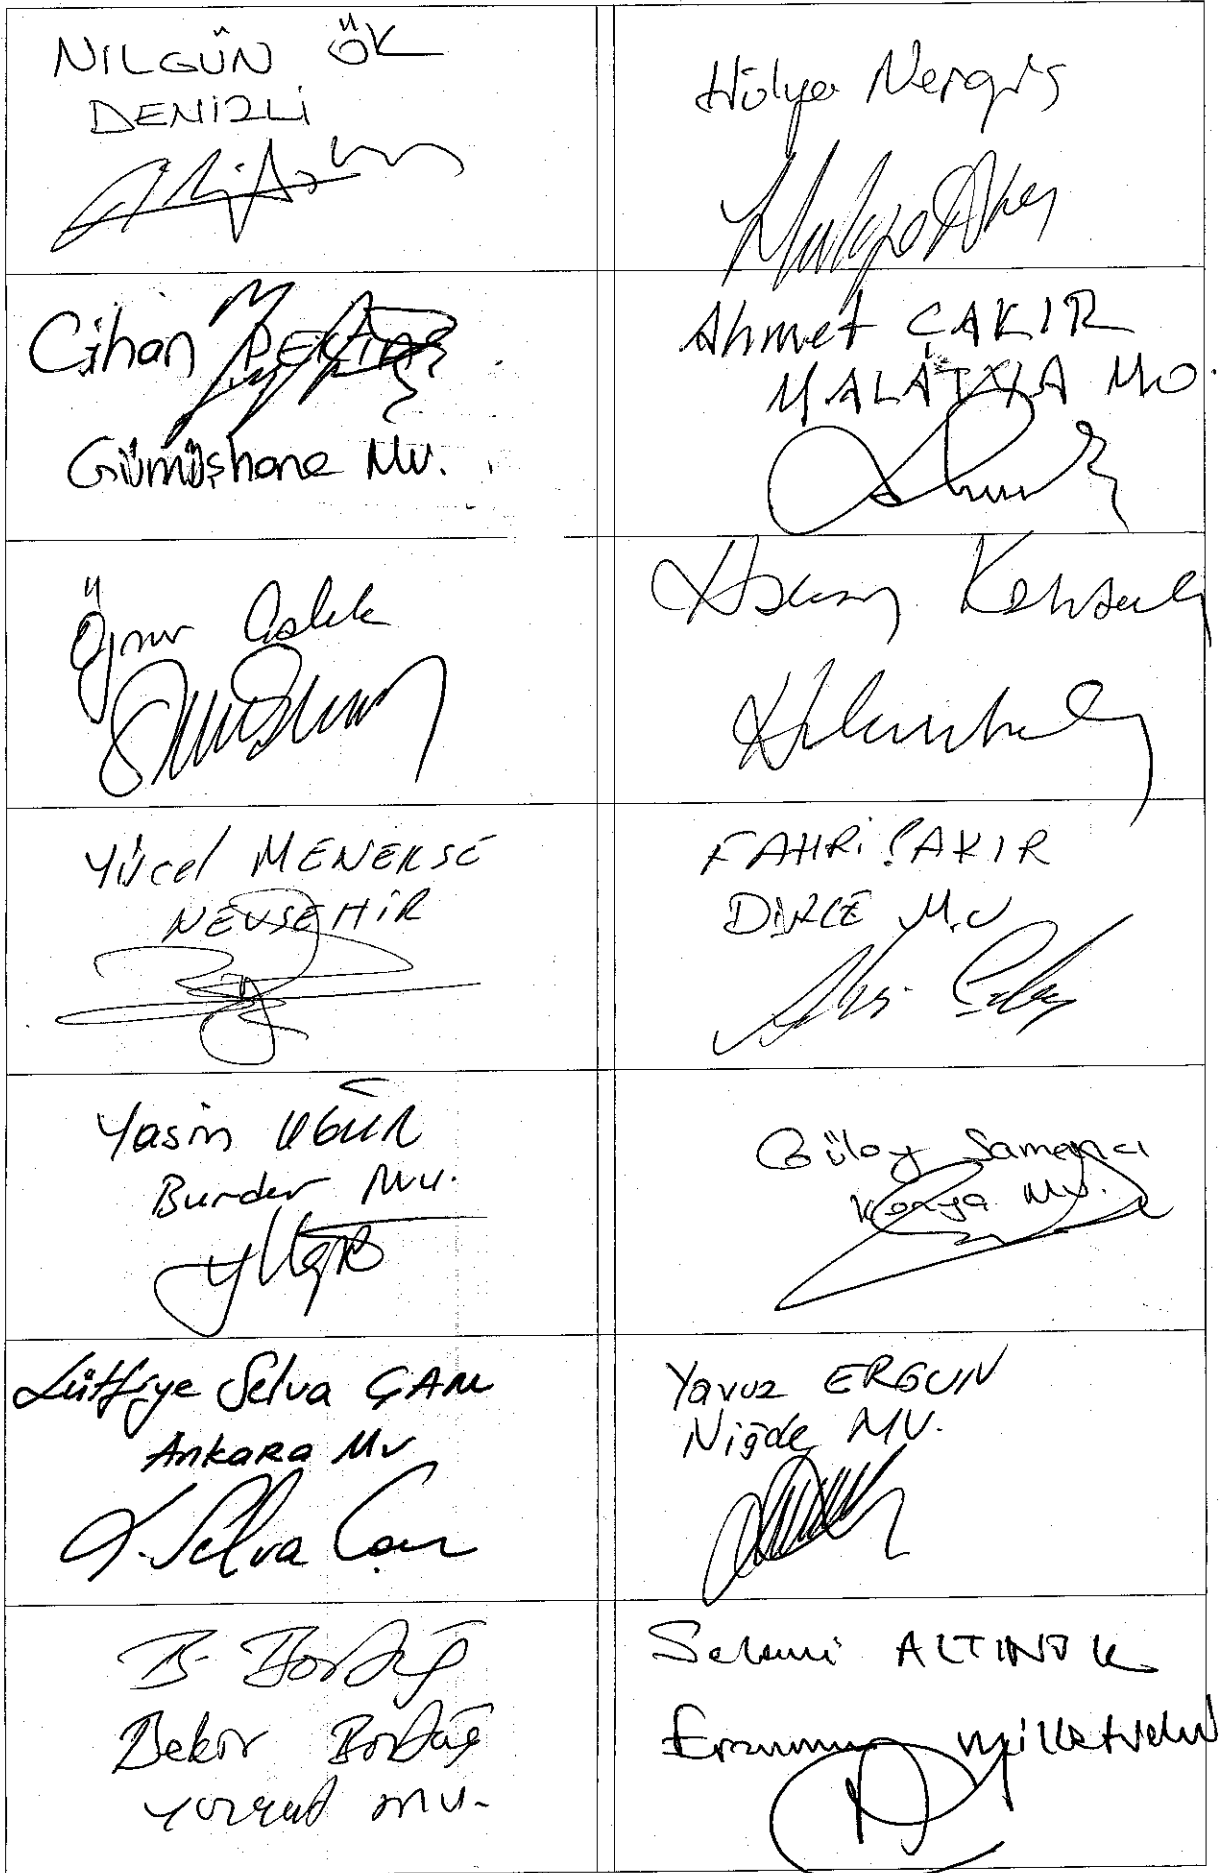 NİLGÜN ÖK
DENİZLİ
Hülya Nergis
Cihan PEKTAŞ
Gümüşhane Mv.
Ahmet ÇAKIR
MALATYA Mv.
Öznur Çalık
Yücel MENEKŞE
NEVŞEHİR
FAHRİ ÇAKIR
DÜZCE M.V
Yasin UĞUR
Burdur Mv.
Gülay Samancı
Konya Mv.
Lütfiye Selva ÇAM
Ankara Mv
K. Selva Çam
Yavuz ERGUN
Niğde MV.
B. Bozdağ
Bekir Bozdağ
Yozgat mv.
Selami ALTINOK
Erzurum milletvekili